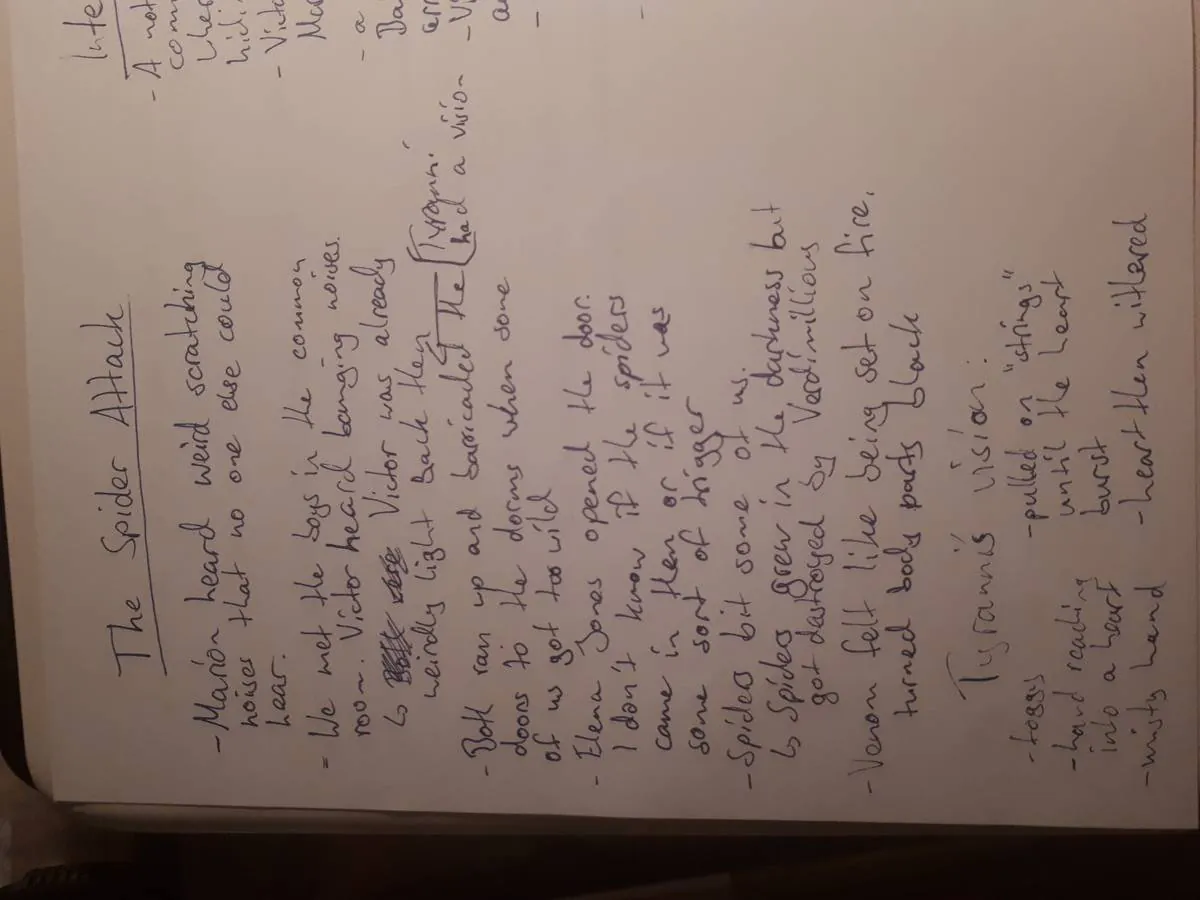 The Spider Attack
- Marion heard weird scratching
noises that no one else could
hear.
= We met the boys in the common
room. Victor heard banging noises.
↳ Victor was already
weirdly light back then
- Both ran up and barricaded the
doors to the dorms when some
of us got too wild
[Tyranni
had a vision
- Elena Jones opened the door.
I don't know if the spiders
came in then or if it was
some sort of trigger
- Spiders bit some of us.
↳ Spiders grew in the darkness but
got destroyed by Verdimillious
- Venom felt like being set on fire.
turned body parts black
Tyranni's vision:
- foggy
- hand reading
into a heart
- misty hand
- pulled on "strings"
until the heart
burst
- heart then withered
Inte
- A not
com
whe
hidi
- Victo
Ma
- a
Da
- Vi